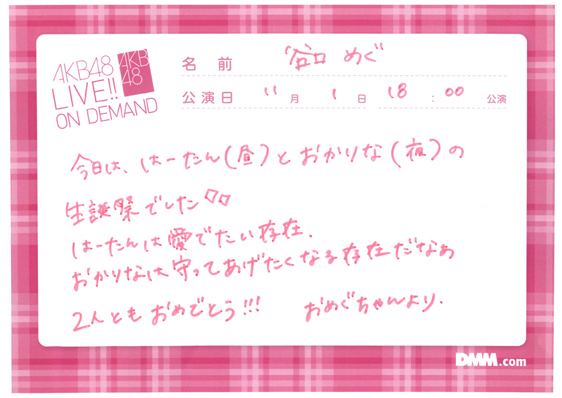 AKB48
LIVE!!
ON DEMAND
AKB
48
名前 谷口 めぐ
公演日 11月 1日 18:00 公演
今日は、はーたん(昼)とおかりな(夜)の
生誕祭でした
はーたんは愛でたい存在.
おかりなは守ってあげたくなる存在だなぁ
2人ともおめでとう!!! おめぐちゃんより.
DMM.com